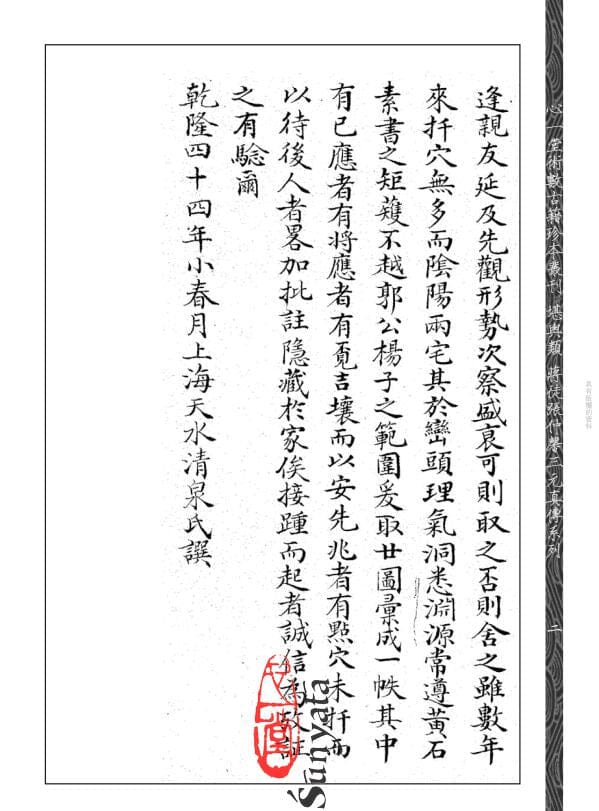 逢親友延及先觀形勢次察盛衰可則取之否則舍之雖數年
來扦穴無多而陰陽兩宅其於巒頭理氣洞悉淵源常遵黃石
素書之矩矱不越郭公楊子之範圍爰取廿圖彙成一帙其中
有已應者有將應者有覓吉壤而以安先兆者有點穴未扦而
以待後人者畧加批註隱藏於家俟接踵而起者誠信為效証
之有驗爾
乾隆四十四年小春月上海天水清泉氏譔
心一堂術數古籍珍本叢刊 堪輿類 蔣徒張仲馨三元真傳系列
二
真有版權的資料
心一堂
Śunyata